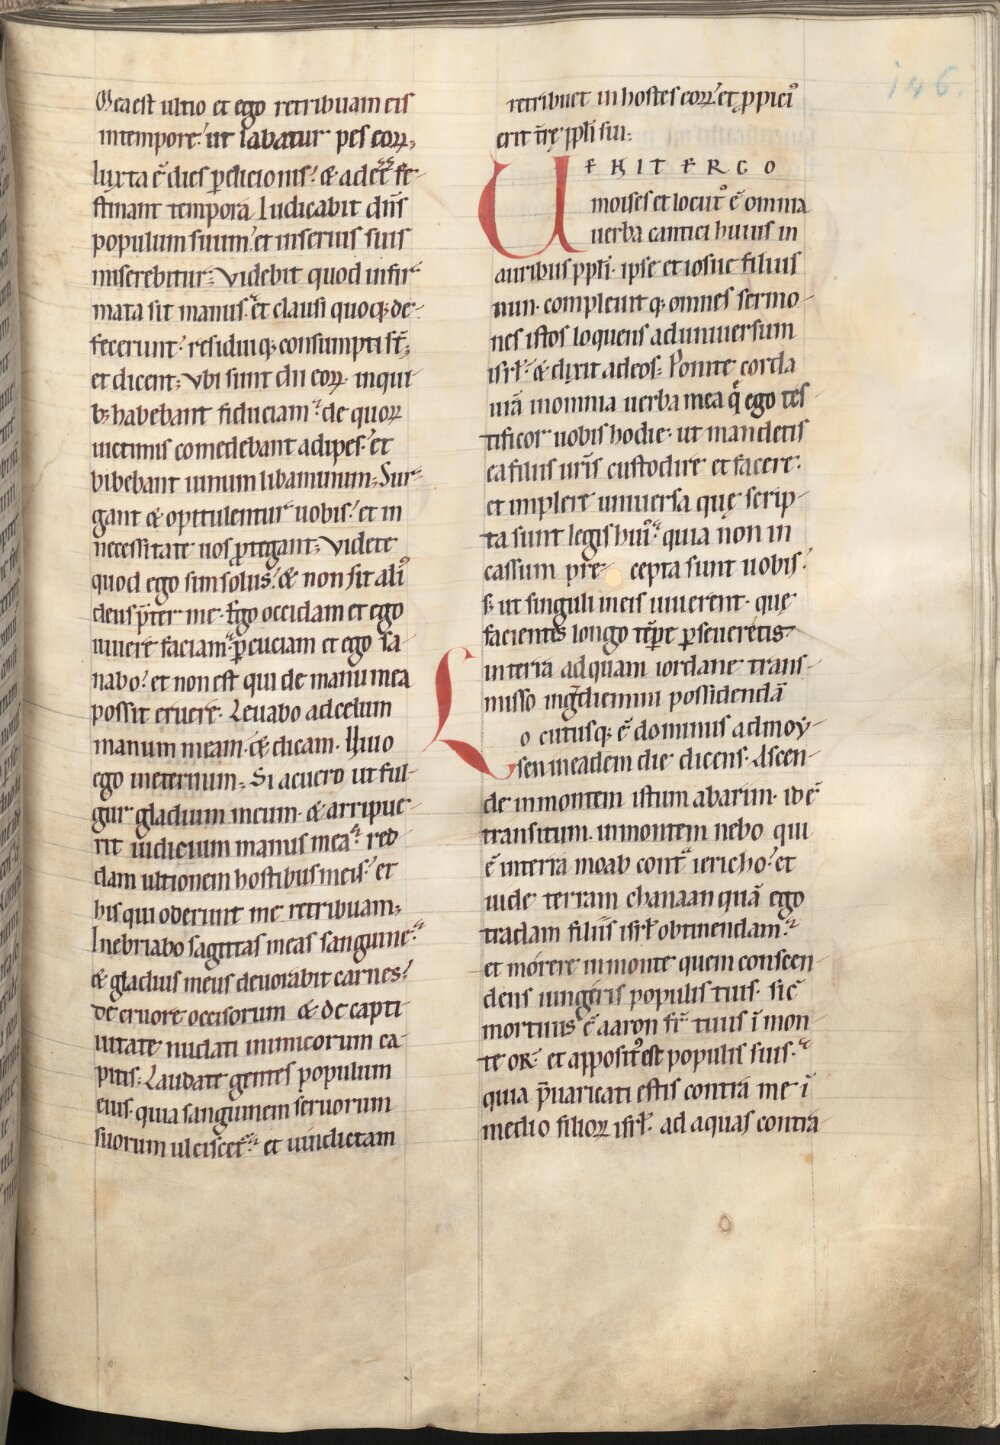 146.
Mea est ultio et ego retribuam eis
intempore.ut labatur pes eoꝝ;
Iuxta ē dies ꝑdicionis. & adeē fe-
stinant tempora Iudicabit dn̄s
populum suum. et inseruis suis
miserebitur; Videbit quod infir-
mata sit manus. et clausi quoq; de-
fecerunt. residuiq; consumpti st̄;
et dicent; Vbi sunt dii eoꝝ. inqui-
b; habebant fiduciam. de quoꝝ
uictimis comedebant adipes. et
bibebant uinum libaminum; Sur-
gant & opitulentur uobis. et in
necessitate uos ꝓtegant; Videte
quod ego sim solus. & non sit ali᾽
deus p̄ter me. Ego occidam et ego
uiuere faciam. ꝑcuciam et ego sa-
nabo. et non est qui de manu mea
possit eruere. Leuabo adcelum
manum meam. & dicam. Uiuo
ego ineternum; Si acuero ut ful-
gur gladium meum. & arripue-
rit iudicium manus mea. red-
dam ultionem hostibus meis. et
his qui oderunt me retribuam;
Inebriabo sagittas meas sanguine.
& gladius meus deuorabit carnes.
de cruore occisorum & de capti-
uitate nudati inimicorum ca-
pitis; Laudate gentes populum
eius. quia sanguinem seruorum
suorum ulciscet᷑. et uindictam
retribuet inhostes eoꝝ. et ꝓpici᾽
erit tr̄ę ppl̄i sui;
UENIT ERGO
moises et locut᾽ ē omnia
uerba cantici huius in
auribus ppl̄i. ipse et iosue filius
nun. compleuit q; omnes sermo-
nes istos loquens aduniuersum
isrł. & dixit adeos; Ponite corda
ur̄a inomnia uerba mea q̄ ego tes-
tificor uobis hodie. ut mandetis
ea filiis ur̄is custodire et facere.
et implere uniuersa quę scrip-
ta sunt legis hui᾽. quia non in
cassum pre cepta sunt uobis.
s; ut singuli ineis uiuerent. quę
facientes longo tēpe ꝑseueretis
interra adquam iordane trans-
misso ingrediemini possidendā
Locutusq; ē dominus admoy-
sen ineadem die dicens. Ascen-
de inmontem istum abarim. id ē
transitum. inmontem nebo qui
ē interra moab contra iericho. et
uide terram chanaan quā ego
tradam filiis isrł obtinendam.
et morere inmonte quem conscen-
dens iungeris populis tuis. sic
mortuus ē aaron fr̄ tuus ī mon-
te or. et apposit᾽ est populis suis.
quia p̄uaricati estis contra me ī
medio filioꝝ isrł. ad aquas contra-